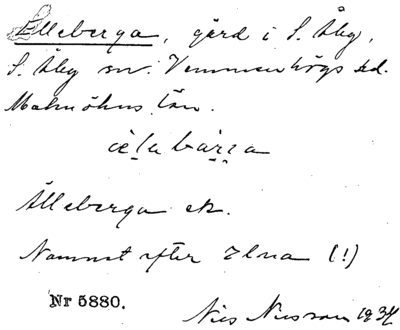 Elleberga, gård i S. Åby,
S. Åby sn. Vemmenhögs hd.
Malmöhus län.
Älleberga ek.
Namnet efter Elna (!)
Nr 5880.
Nils Nilsson 1934